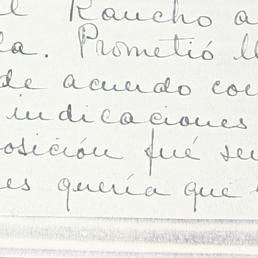 l Rancho a
la. Prometió ll
de acuerdo con
indicaciones
osición fué se
es quería que